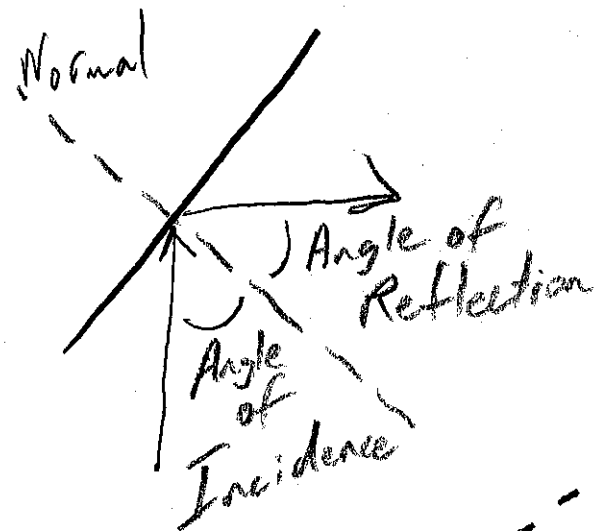 Normal
Angle of
Reflection
Angle
of
Incidence